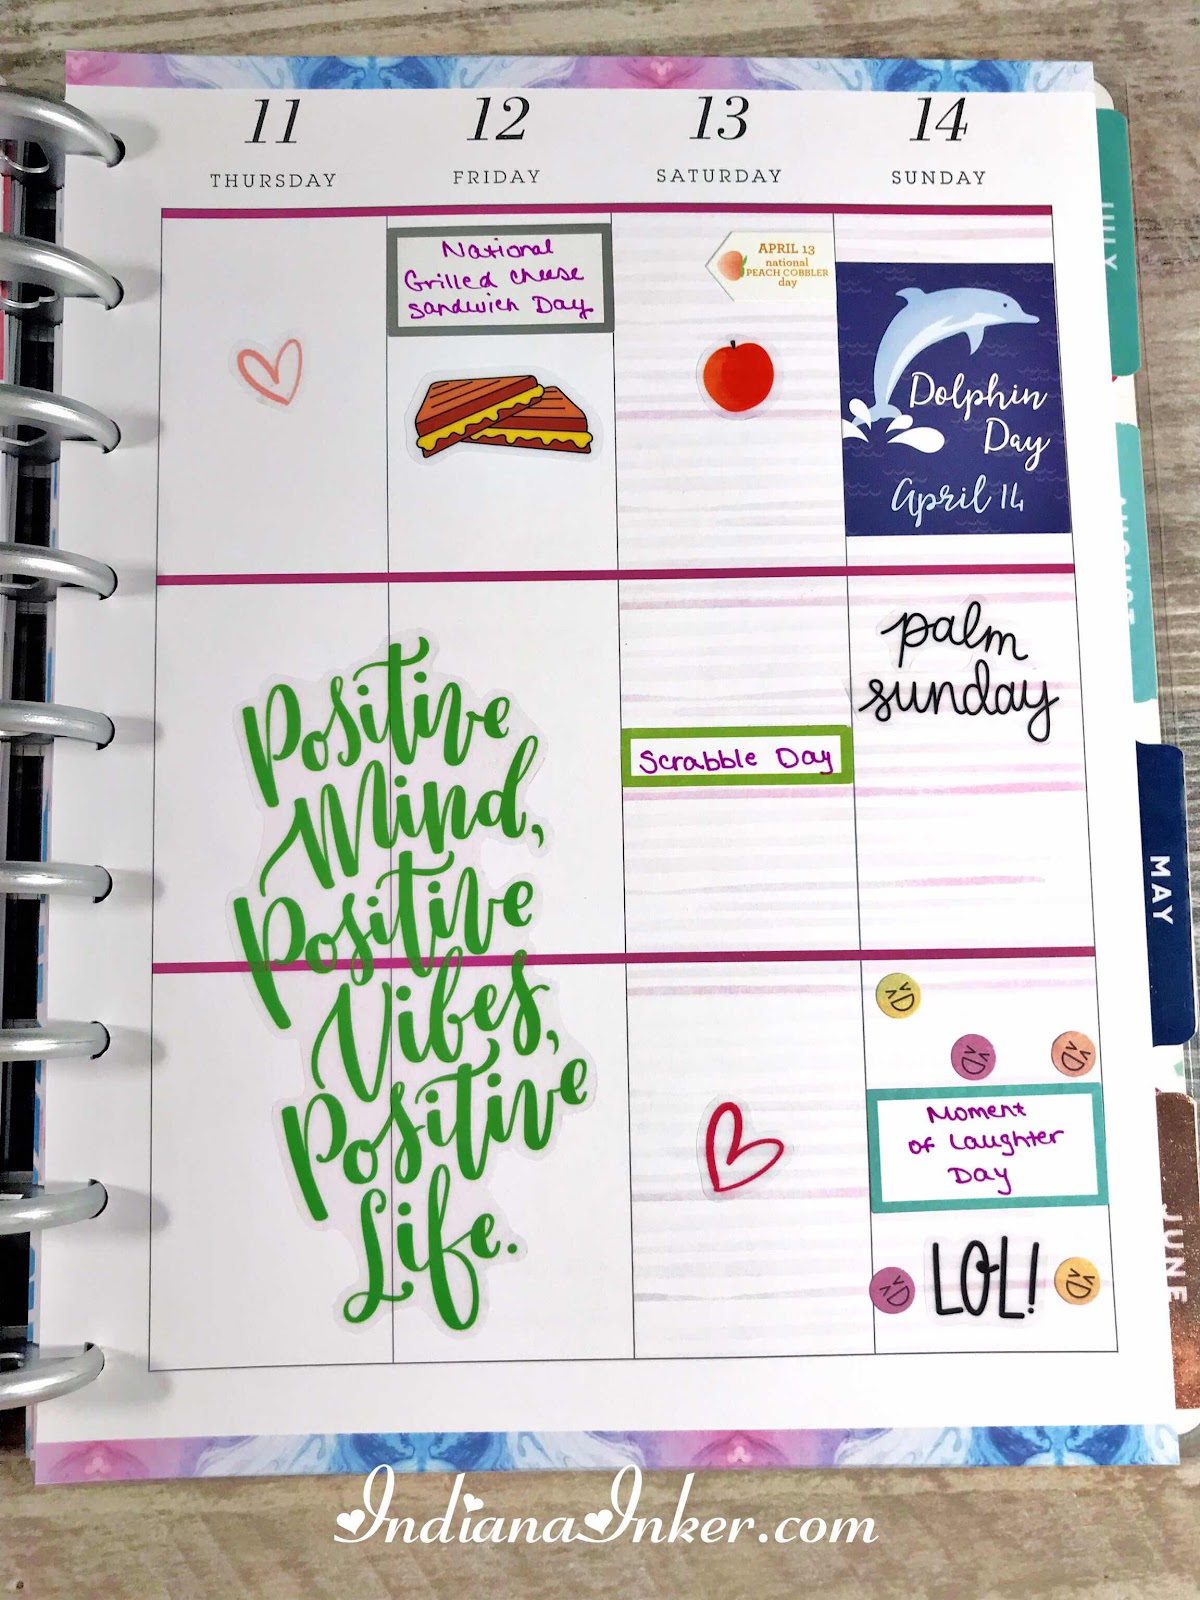 11
THURSDAY
12
FRIDAY
13
SATURDAY
14
SUNDAY
National
Grilled cheese
sandwich Day
APRIL 13
national
PEACH COBBLER
day
Dolphin
Day
April 14
Positive
Mind,
Positive
Vibes,
Positive
Life.
Scrabble Day
palm
sunday
XD
XD
XD
Moment
of Laughter
Day
LOL!
XD
XD
JULY
AUGUST
MAY
JUNE
IndianaInker.com